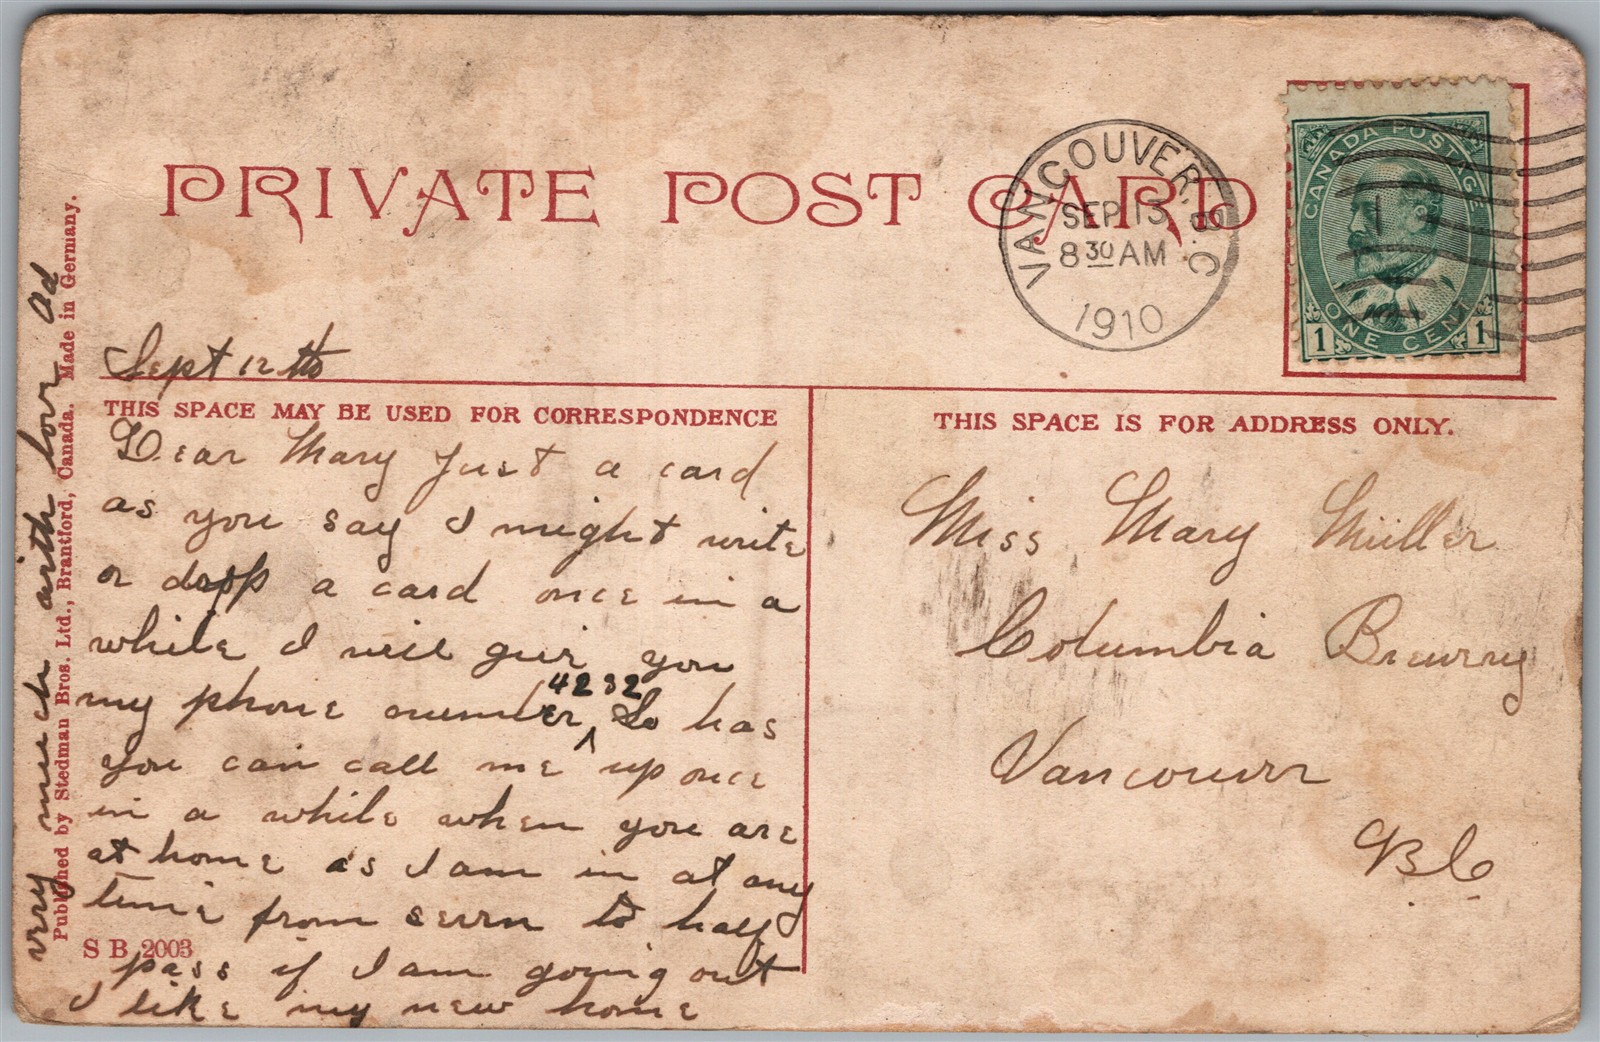 PRIVATE POST CARD
VANCOUVER, B.C.
SEP 13
8 30 AM
1910
CANADA POSTAGE
1 ONE CENT 1
Sept 12 th
THIS SPACE MAY BE USED FOR CORRESPONDENCE
Dear Mary Just a card
as you say I might write
or dropp a card once in a
while I will give you
my phone number 4232 So has
you can call me up once
in a while when you are
at home as I am in at any
time from seven to half
pass if I am going out
I like my new home
very much with love Ad
Published by Stedman Bros. Ltd., Brantford, Canada. Made in Germany.
S B 2003
THIS SPACE IS FOR ADDRESS ONLY.
Miss Mary Müller
Columbia Brewery
Vancouver
B C